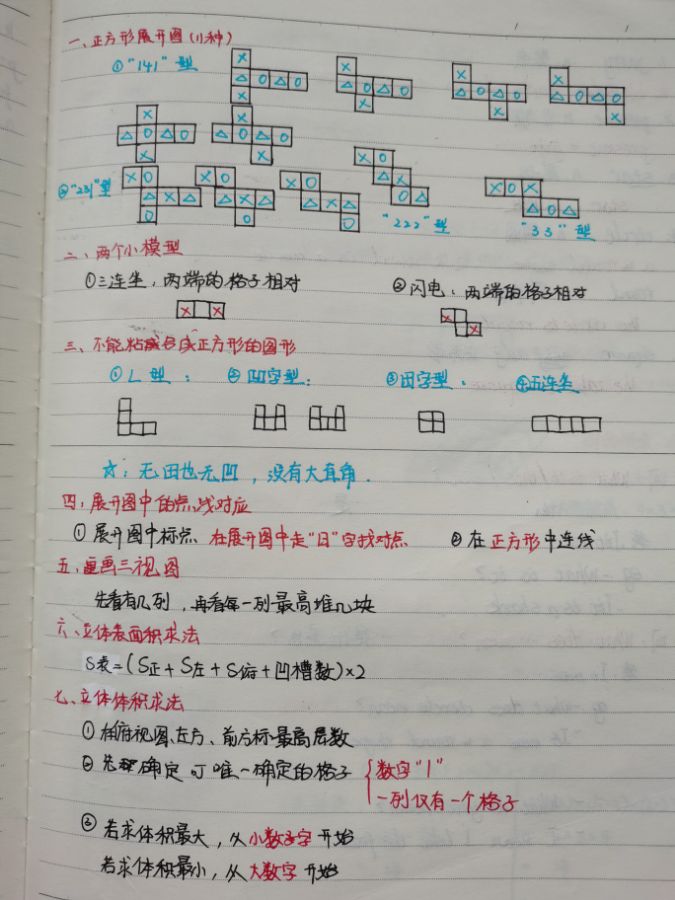 一、正方形展开图(11种)
①"141"型
②"231"型
"222"型
"33"型
二、两个小模型
①三连坐,两端的格子相对 ②闪电:两端的格子相对
三、不能粘成正方形的图形
①L型: ②凹字型: ③田字型: ④五连坐
☆:无田也无凹,没有大直角.
四,展开图中的点线对应
①展开图中标点 在展开图中走"日"字找对点 ②在正方形中连线
五,画三视图
先看有几列,再看每一列最高堆几块
六、立体表面积求法
S表=(S正+S左+S俯+凹槽数)×2
七、立体体积求法
①俯视图左方、前方标最高层数
②先确定可唯一确定的格子 {数字"1"
一列仅有一个格子
③若求体积最大,从小数字开始
若求体积最小,从大数字开始